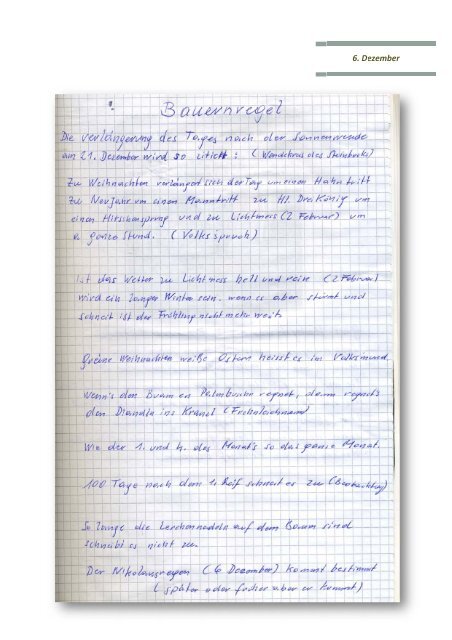 6. Dezember
Bauernregel
Die verlängerung des Tages nach der Sonnenwende
am 21. Dezember wird so citiert : ( Wendekreis des Steinbocks)
Zu Weihnachten verlängert sich der Tag um einen Hahntritt
Zu Neujahr um einen Manntritt zu Hl. Dreikönig um
einen Hirschensprung und zu Lichtmess (2 Februar) um
a ganze Stund. ( Volksspruch)
Ist das Wetter zu Lichtmess hell und rein (2 Februar)
wird ein langer Winter sein. wenn es aber stürmt und
schneit ist der Frühling nicht mehr weit.
Grüne Weihnachten weiße Ostern heisst es im Volksmund.
Wenn's den Buam en Palmbuschn regnet, dann regnet's
den Diandln ins Kranzl (Frohnleichnam)
Wie der 1. und 4. des Monat's so das ganze Monat.
100 Tage nach dem 1. Reif schneit es zu (Beobachtung)
So lange die Lerchennadeln auf dem Baum sind
schneibt es nicht zu.
Der Nikolausregen ( 6 Dezember) kommt bestimmt
( später oder früher aber er kommt)